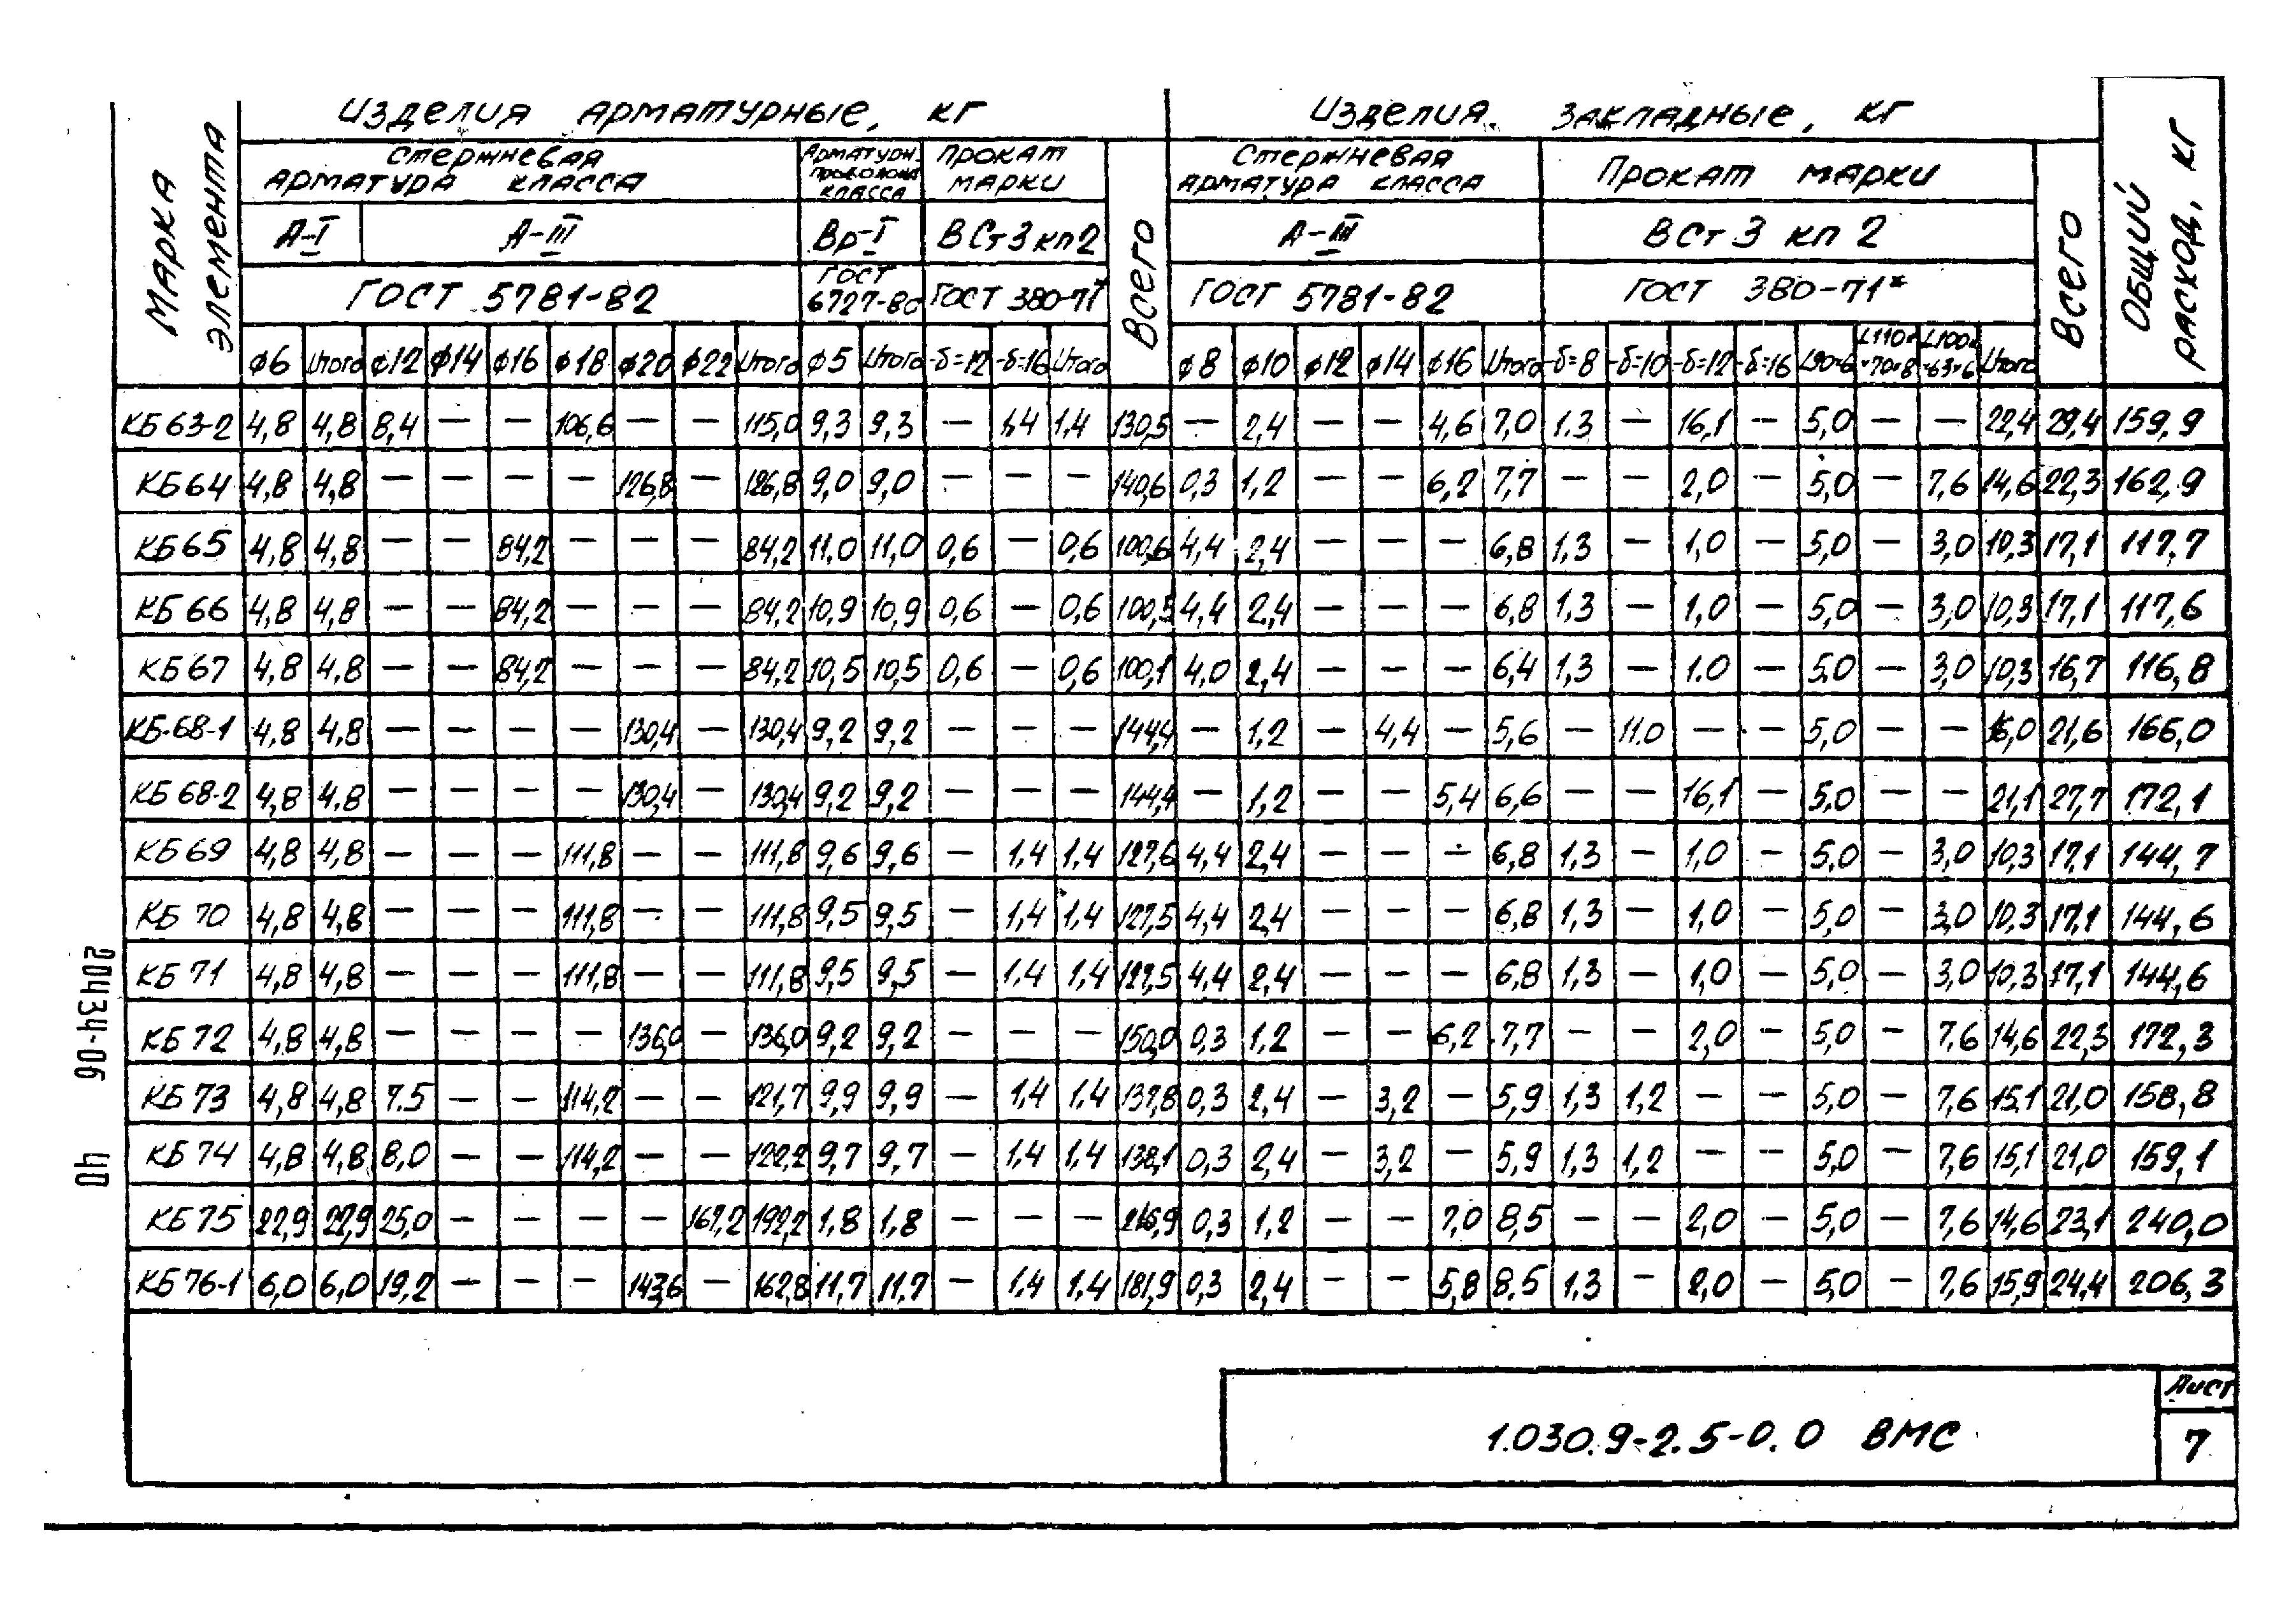 Изделия арматурные, кг Изделия закладные, кг
Марка элемента
Стержневая арматура класса
Прокат марки
Всего
Стержневая арматура класса
Прокат марки
Всего
Общий расход, кг
А-I А-III Вр-I ВСт3кп2 А-III ВСт3 кп 2
ГОСТ 5781-82 ГОСТ 6727-80 ГОСТ 380-71* ГОСТ 5781-82 ГОСТ 380-71*
ϕ6 Итого ϕ12 ϕ14 ϕ16 ϕ18 ϕ20 ϕ22 Итого ϕ5 Итого -δ=12 -δ=16 Итого ϕ8 ϕ10 ϕ12 ϕ14 ϕ16 Итого -δ=8 -δ=10 -δ=12 -δ=16 L90×6 L110××70×8 L100××63×6 Итого
КБ 63-2 4,8 4,8 8,4 — — 106,6 — — 115,0 9,3 9,3 — 1,4 1,4 130,5 — 2,4 — — 4,6 7,0 1.3 — 16,1 — 5,0 — — 22,4 29,4 159,9
КБ 64 4,8 4,8 — — — — 126,8 — 126,8 9,0 9,0 — — — 140,6 0,3 1,2 — — 6,2 7,7 — — 2,0 — 5,0 — 7,6 14,6 22,3 162,9
КБ 65 4,8 4,8 — — 84,2 — — — 84,2 11,0 11,0 0,6 — 0,6 100,6 4,4 2,4 — — — 6,8 1,3 — 1,0 — 5,0 — 3,0 10,3 17,1 117,7
КБ 66 4,8 4,8 — — 84,2 — — — 84,2 10,9 10,9 0,6 — 0,6 100,5 4,4 2,4 — — — 6,8 1,3 — 1,0 — 5,0 — 3,0 10,3 17,1 117,6
КБ 67 4,8 4,8 — — 84,2 — — — 84,2 10,5 10,5 0,6 — 0,6 100,1 4,0 2,4 — — — 6,4 1,3 — 1.0 — 5,0 — 3,0 10,3 16,7 116,8
КБ-68-1 4,8 4,8 — — — — 130,4 — 130,4 9,2 9,2 — — — 144,4 — 1,2 — 4,4 — 5,6 — 11.0 — — 5,0 — — 16,0 21,6 166,0
КБ 68-2 4,8 4,8 — — — — 130,4 — 130,4 9,2 9,2 — — — 144,4 — 1,2 — — 5,4 6,6 — — 16,1 — 5,0 — — 21,1 27,7 172,1
КБ 69 4,8 4,8 — — — 111,8 — — 111,8 9,6 9,6 — 1,4 1,4 127,6 4,4 2,4 — — — 6,8 1,3 — 1,0 — 5,0 — 3,0 10,3 17,1 144,7
КБ 70 4,8 4,8 — — — 111,8 — — 111,8 9,5 9,5 — 1,4 1,4 127,5 4,4 2,4 — — — 6,8 1,3 — 1,0 — 5,0 — 3,0 10,3 17,1 144,6
КБ 71 4,8 4,8 — — — 111,8 — — 111,8 9,5 9,5 — 1,4 1,4 127,5 4,4 2,4 — — — 6,8 1,3 — 1,0 — 5,0 — 3,0 10,3 17,1 144,6
КБ 72 4,8 4,8 — — — — 136,0 — 136,0 9,2 9,2 — — — 150,0 0,3 1,2 — — 6,2 7,7 — — 2,0 — 5,0 — 7,6 14,6 22,3 172,3
КБ 73 4,8 4,8 7.5 — — 114,2 — — 121,7 9,9 9,9 — 1,4 1,4 137,8 0,3 2,4 — 3,2 — 5,9 1,3 1,2 — — 5,0 — 7,6 15,1 21,0 158,8
КБ 74 4,8 4,8 8,0 — — 114,2 — — 122,2 9,7 9,7 — 1,4 1,4 138,1 0,3 2,4 — 3,2 — 5,9 1,3 1,2 — — 5,0 — 7,6 15,1 21,0 159,1
КБ 75 22,9 22,9 25,0 — — — — 167,2 192,2 1,8 1,8 — — — 216,9 0,3 1,2 — — 7,0 8,5 — — 2,0 — 5,0 — 7,6 14,6 23,1 240,0
КБ 76-1 6,0 6,0 19,2 — — — 143,6 — 162,8 11,7 11,7 — 1,4 1,4 181,9 0,3 2,4 — — 5,8 8,5 1,3 — 2,0 — 5,0 — 7,6 15,9 24,4 206,3
20434-06 40
1.030.9-2.5-0.0 ВМС
Лист
7